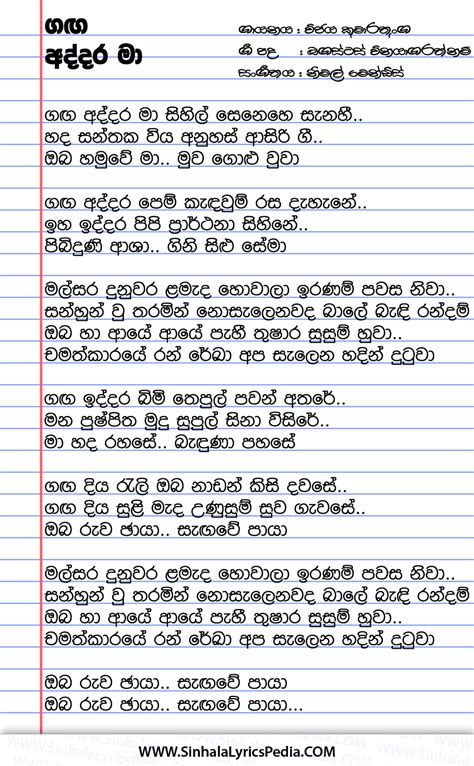 ගඟ
අද්දර මා
ගායනය : විජය කුමාරතුංග
ගී පද : ඔගස්ටස් විනයාගරත්නම්
සංගීතය : නිමල් මෙන්ඩිස්
ගඟ අද්දර මා සිහිල් සෙනෙහෙ සැනහී..
හද සන්තක විය අනුහස් ආසිරි ගී..
ඔබ හමුවේ මා.. මුව ගොළු වුවා
ගඟ අද්දර පෙම් කැඳවුම් රස දැහැනේ..
ඉහ ඉද්දර පිපි ප්‍රාර්ථනා සිහිනේ..
පිබිදුණි ආශා.. ගිනි සිළු සේමා
මල්සර දුනුවර ළමැද හොවාලා ඉරණම් පවස නිවා..
සන්හුන් වු තරමින් නොසැලෙනවද බාලේ බැඳි රන්දම්
ඔබ හා ආයේ ආයේ පැහී තුෂාර සුසුම් හුවා..
චමත්කාරයේ රන් රේඛා අප සැලෙන හදින් දුටුවා
ගඟ ඉද්දර බිම් තෙපුල් පවන් අතරේ..
මන පුෂ්පිත මුදු සුපුල් සිනා විසිරේ..
මා හද රහසේ.. බැඳුණා පහසේ
ගඟ දිය රැලි ඔබ නාඩන් කිසි දවසේ..
ගඟ දිය සුළි මැද උණුසුම් සුව ගැවසේ..
ඔබ රුව ඡායා.. සැඟවේ පායා
මල්සර දුනුවර ළමැද හොවාලා ඉරණම් පවස නිවා..
සන්හුන් වු තරමින් නොසැලෙනවද බාලේ බැඳි රන්දම්
ඔබ හා ආයේ ආයේ පැහී තුෂාර සුසුම් හුවා..
චමත්කාරයේ රන් රේඛා අප සැලෙන හදින් දුටුවා
ඔබ රුව ඡායා.. සැඟවේ පායා
ඔබ රුව ඡායා.. සැඟවේ පායා...
www.SinhalaLyricsPedia.COM